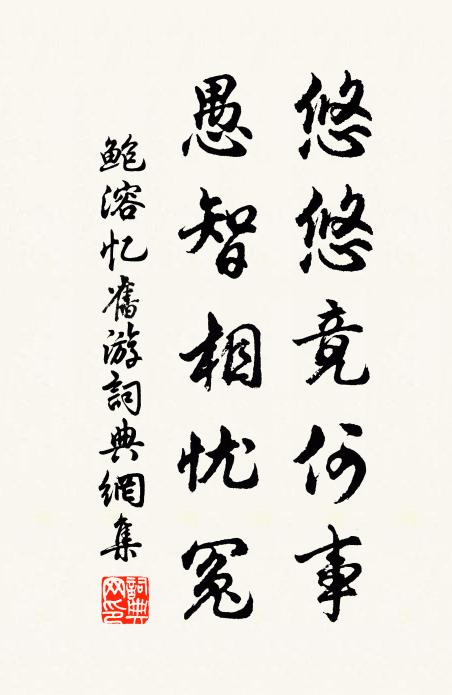 悠悠竟何事
愚智相忧冤
鲍溶忆舊游詞典網集
詞典网印